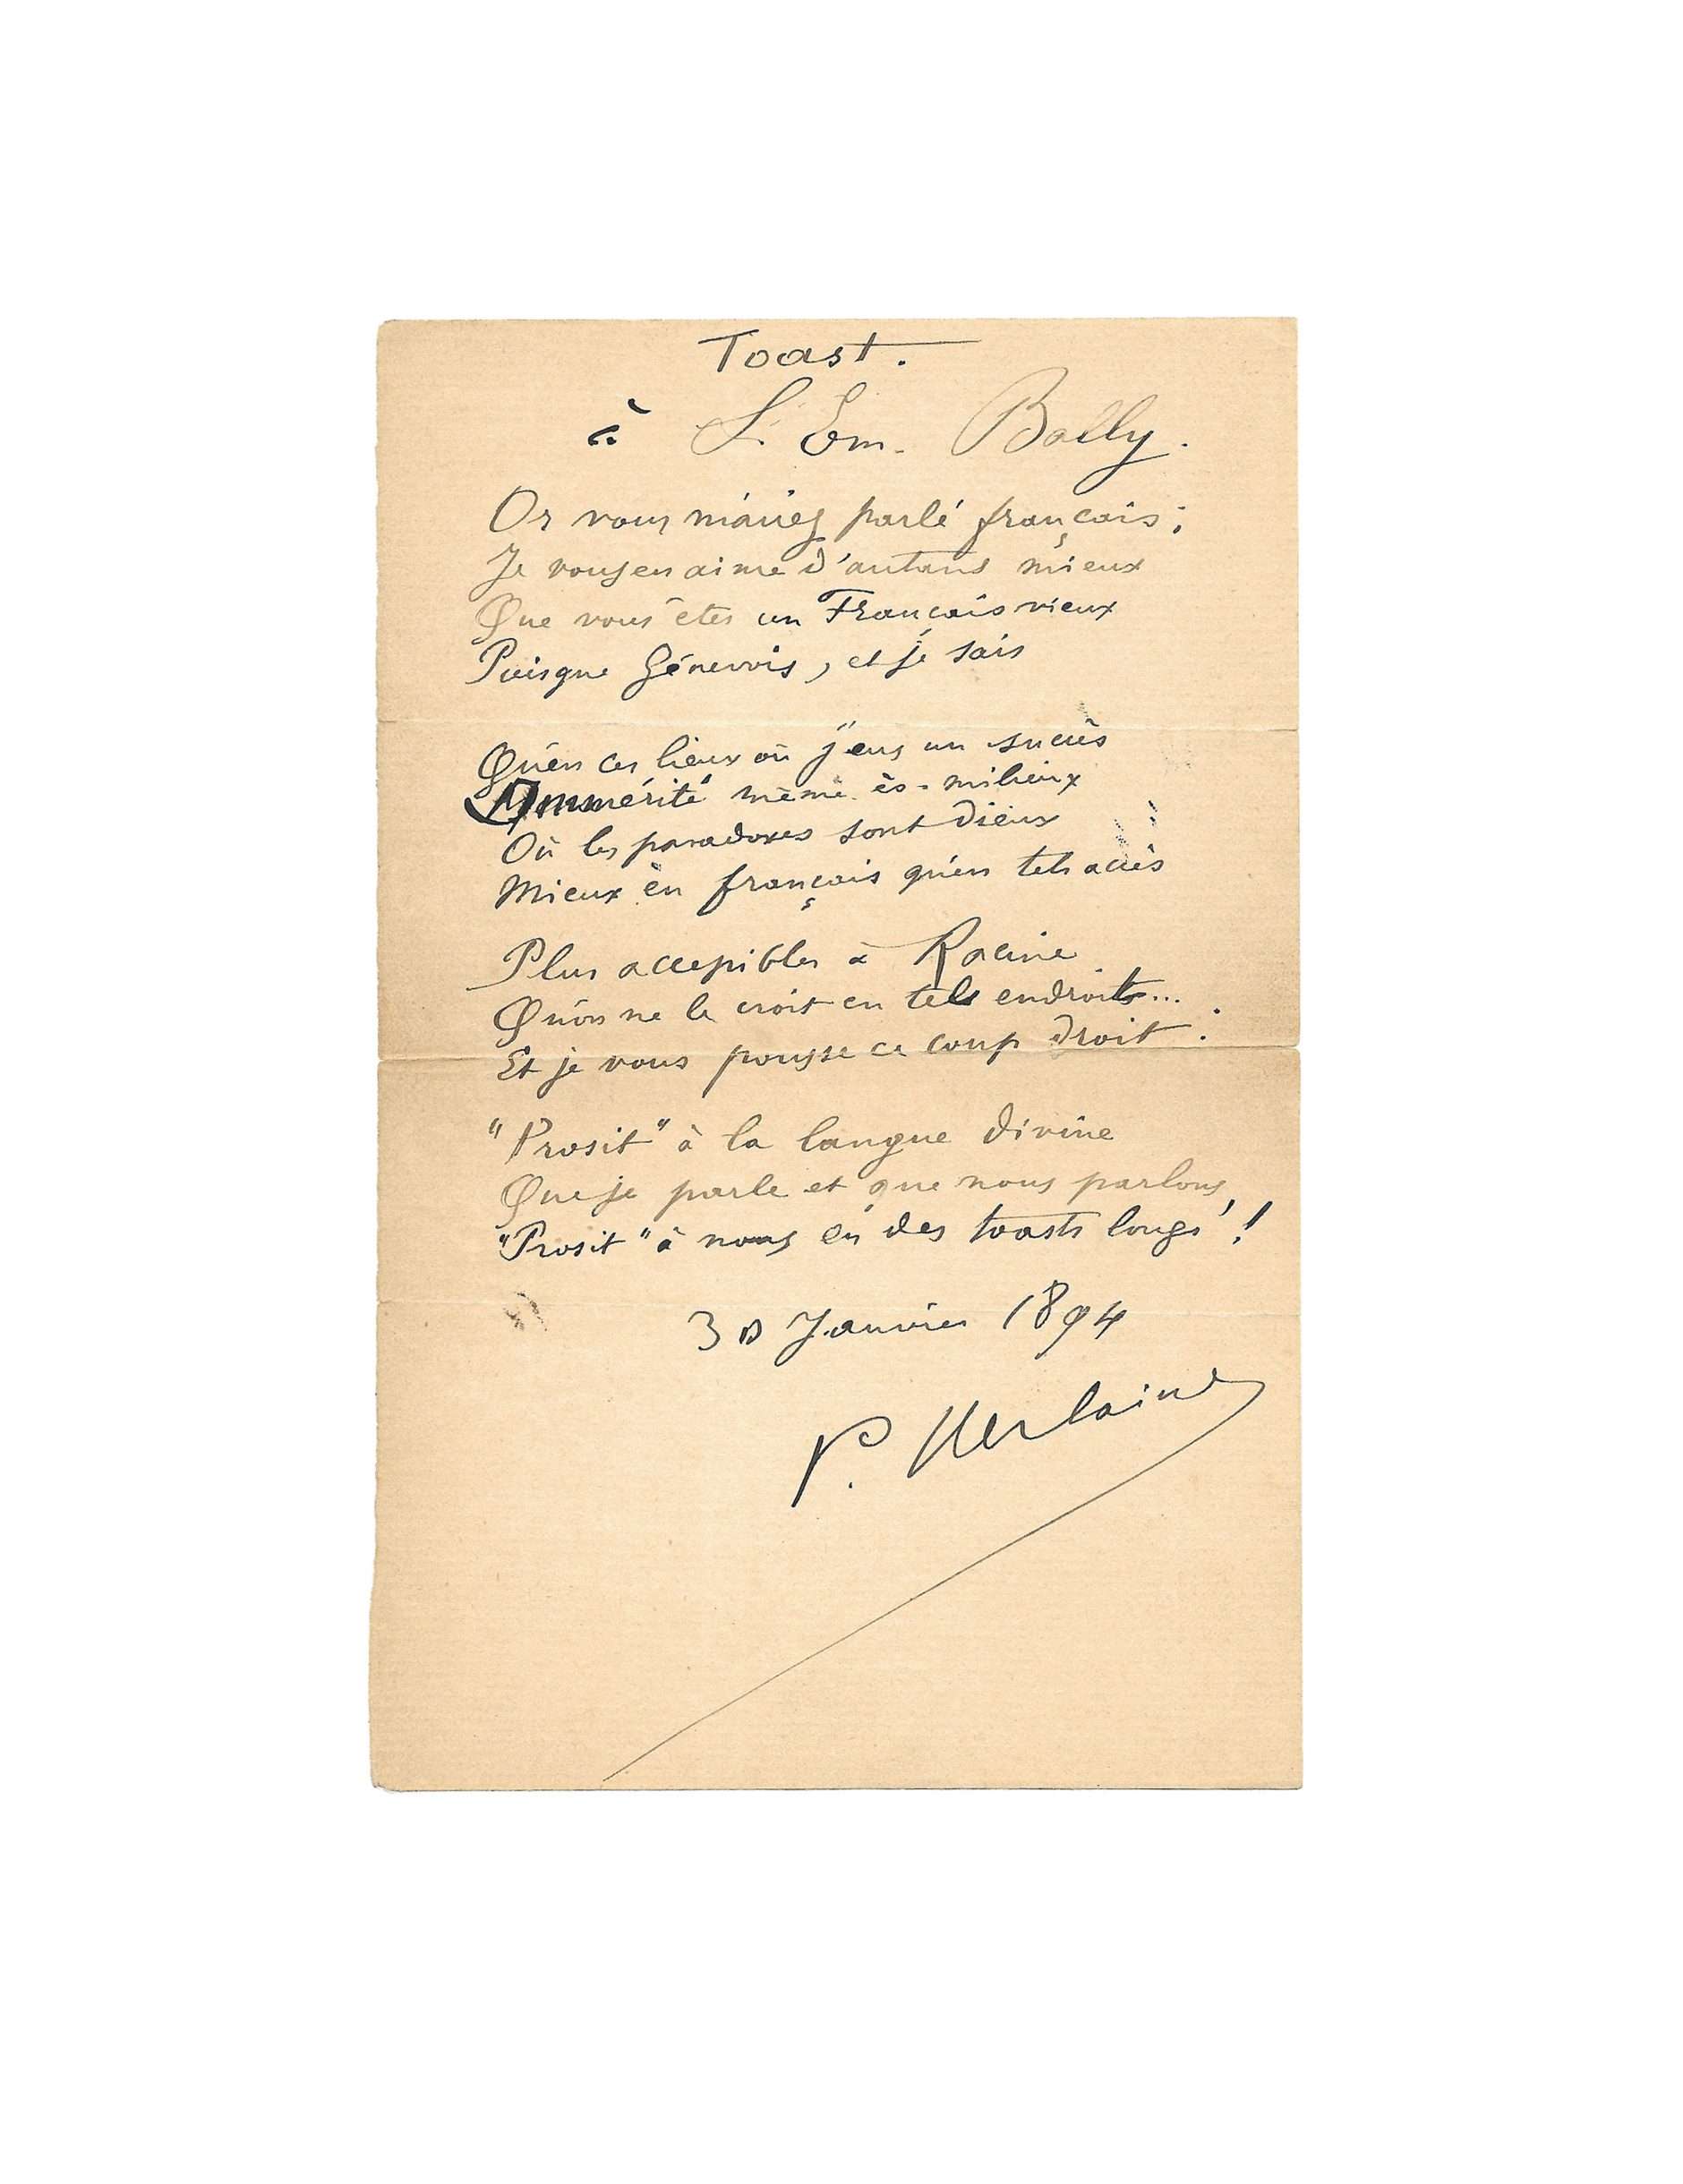 Toast.
à L. Em. Bally.
Or vous m'aviez parlé français ;
Je vous en aime d'autant mieux
Que vous êtes un Français vieux
Puisque Génevois, et je sais
Qu'en ces lieux où j'eus un succès
Immérité même ès-milieux
Où les paradoxes sont dieux
Mieux en français qu'en tels accès
Plus accessibles à Racine
Qu'on ne le croit en tels endroits...
Et je vous pousse ce coup droit :
"Prosit" à la langue divine
Que je parle et que nous parlons,
"Prosit" à nous en des toasts longs !
30 Janvier 1894
P. Verlaine